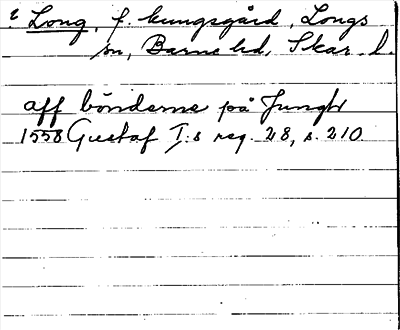 ? Long, f. kungsgård, Longs
sn, Barne hd, Skar. l.
aff bönderne på Jungh
1558 Gustaf I:s reg. 28, s. 210